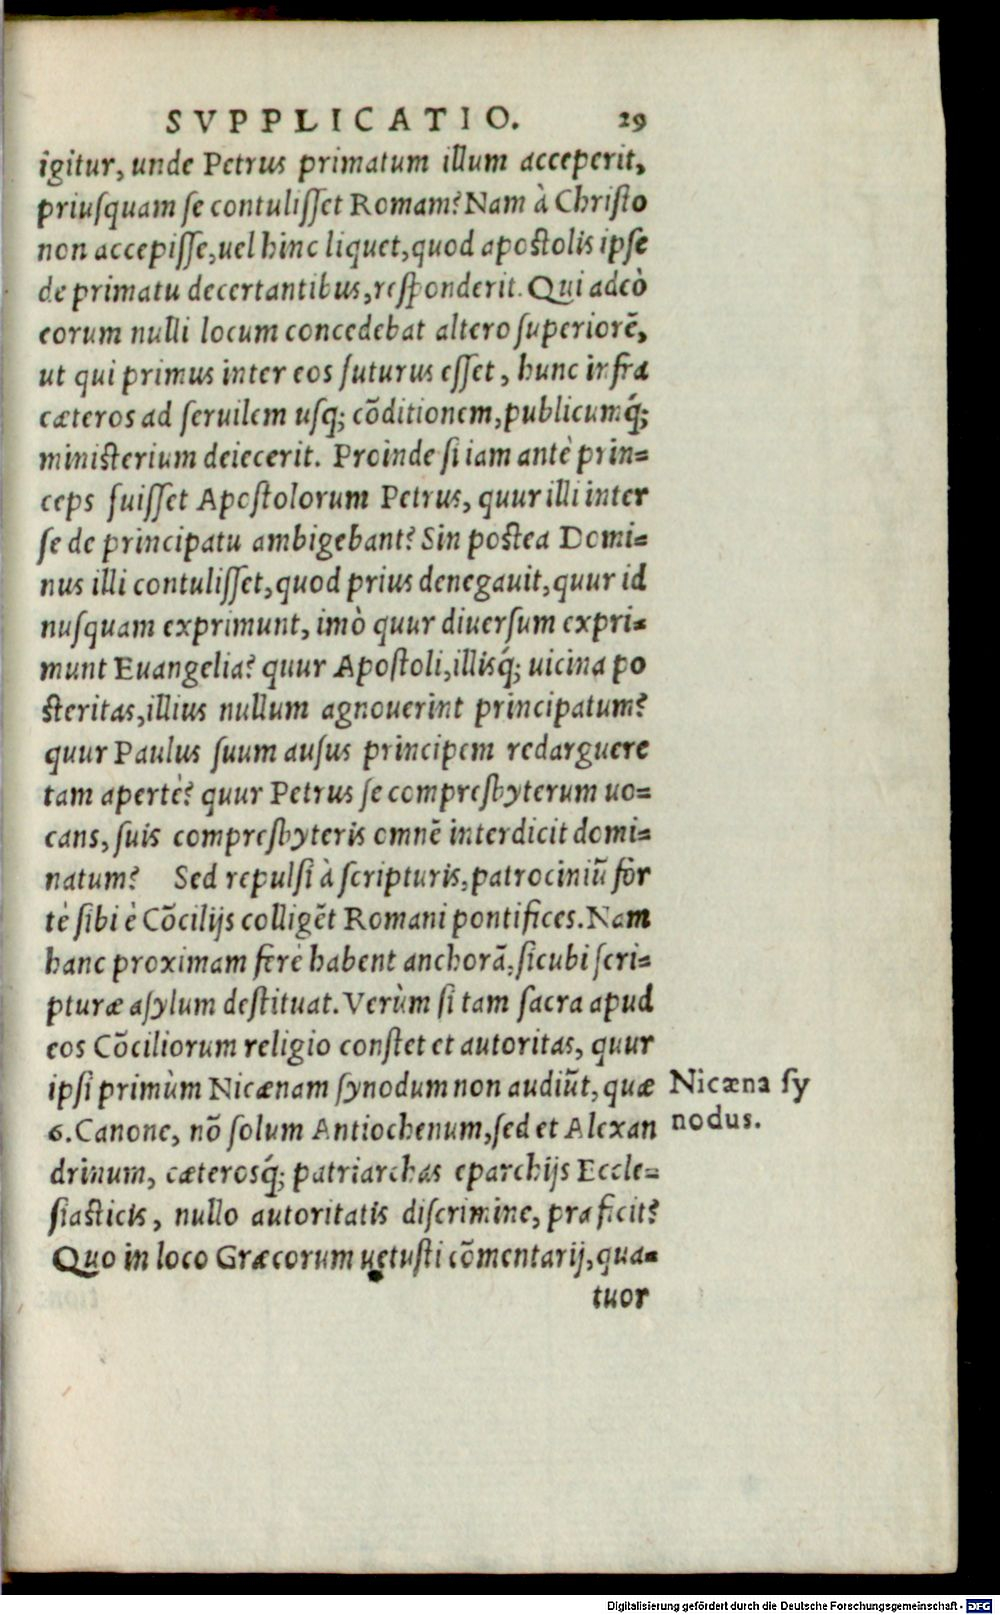 SVPPLICATIO. 29
igitur, unde Petrus primatum illum acceperit,
priuſquam ſe contuliſſet Romam? Nam à Chriſto
non accepiſſe, uel hinc liquet, quod apoſtolis ipſe
de primatu decertantibus, reſponderit. Qui adeò
eorum nulli locum concedebat altero ſuperiorē,
ut qui primus inter eos futurus eſſet, hunc infra
cæteros ad ſeruilem uſq; cōditionem, publicumq́;
miniſterium deiecerit. Proinde ſi iam antè prin=
ceps fuiſſet Apoſtolorum Petrus, quur illi inter
ſe de principatu ambigebant? Sin poſtea Domi=
nus illi contuliſſet, quod prius denegauit, quur id
nuſquam exprimunt, imò quur diuerſum expri=
munt Euangelia? quur Apoſtoli, illisq́; uicina po
ſteritas, illius nullum agnouerint principatum?
quur Paulus ſuum auſus principem redarguere
tam apertè? quur Petrus ſe compreſbyterum uo=
cans, ſuis compreſbyteris omnē interdicit domi=
natum? Sed repulſi à ſcripturis, patrociniū for
tè ſibi è Cōcilijs colligēt Romani pontifices. Nam
hanc proximam ferè habent anchorā, ſicubi ſcri=
pturæ aſylum deſtituat. Verùm ſi tam ſacra apud
eos Cōciliorum religio conſtet et autoritas, quur
ipſi primùm Nicænam ſynodum non audiūt, quæ
6. Canone, nō ſolum Antiochenum, ſed et Alexan
drinum, cæterosq́; patriarchas eparchijs Eccle=
ſiaſticis, nullo autoritatis diſcrimine, præficit?
Quo in loco Græcorum uetuſti cōmentarij, qua=
tuor
Nicæna ſy
nodus.
Digitalisierung gefördert durch die Deutsche Forschungsgemeinschaft - DFG